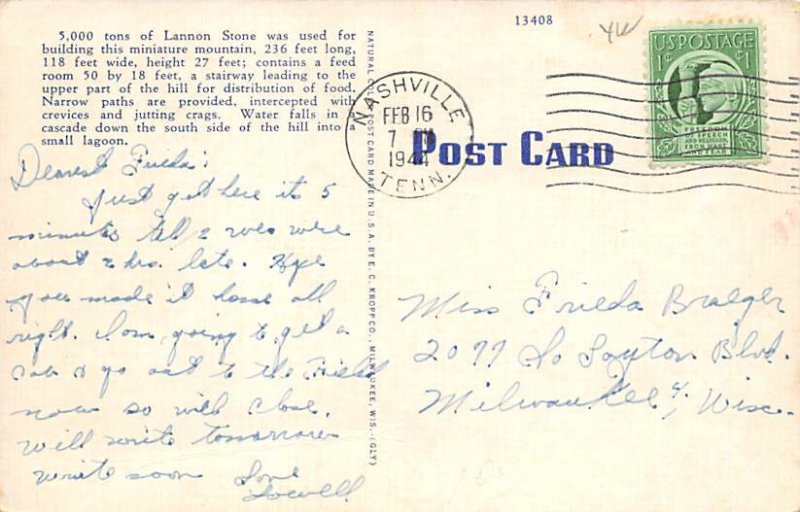 5,000 tons of Lannon Stone was used for
building this miniature mountain, 236 feet long,
118 feet wide, height 27 feet; contains a feed
room 50 by 18 feet, a stairway leading to the
upper part of the hill for distribution of food.
Narrow paths are provided, intercepted with
crevices and jutting crags. Water falls in a
cascade down the south side of the hill into a
small lagoon.
Dearest Frieda:
Just got here its 5
minutes till 2 was were
about 2 hrs. late. Hope
you made it home all
right. I'm going to get a
cab & go out to the Field
now so will close.
Will write tomorrow
write soon Love
Lowell
NATURAL COLOR POST CARD MADE IN U. S. A. BY E. C. KROPP CO., MILWAUKEE, WIS. (GLY)
13408
NASHVILLE
FEB 16
7 PM
1944
TENN.
POST CARD
US POSTAGE
1¢ 1
FREEDOM
OF SPEECH
AND RELIGION,
FROM WANT
AND FEAR
Miss Frieda Braeger
2077 So Layton Blvd.
Milwaukee 4, Wisc.